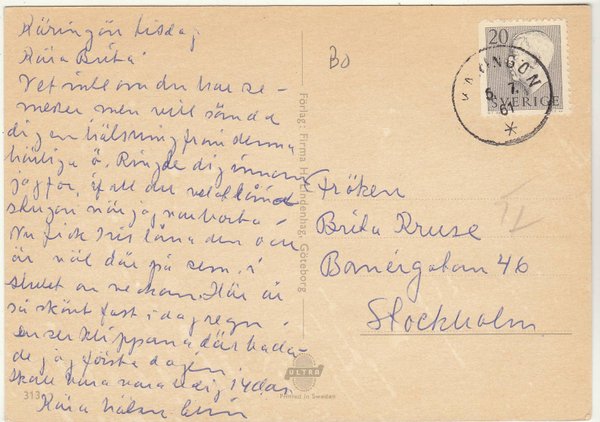 Käringön tisdag
Kära Brita!
Vet inte om du har se-
mester men vill sända
dig en hälsning från denna
härliga ö. Ringde dig innan
jag for, ifall du velat låna
stugan när jag var borta.
Nu fick Iris låna den o en
är väl där på sem. i
slutet av veckan. Här är
så skönt fast i dag regn.
Du ser klipporna där bada-
de jag första dagen.
Skall vara vara 14 dar
Kära hälsn.
BO
20
SVERIGE
KÄRINGÖN
6. 7.
61
Förlag: Firma H. Lindenhag, Göteborg
Fröken
Brita Kruse
Banérgatan 46
Stockholm
ULTRA
Printed in Sweden
313